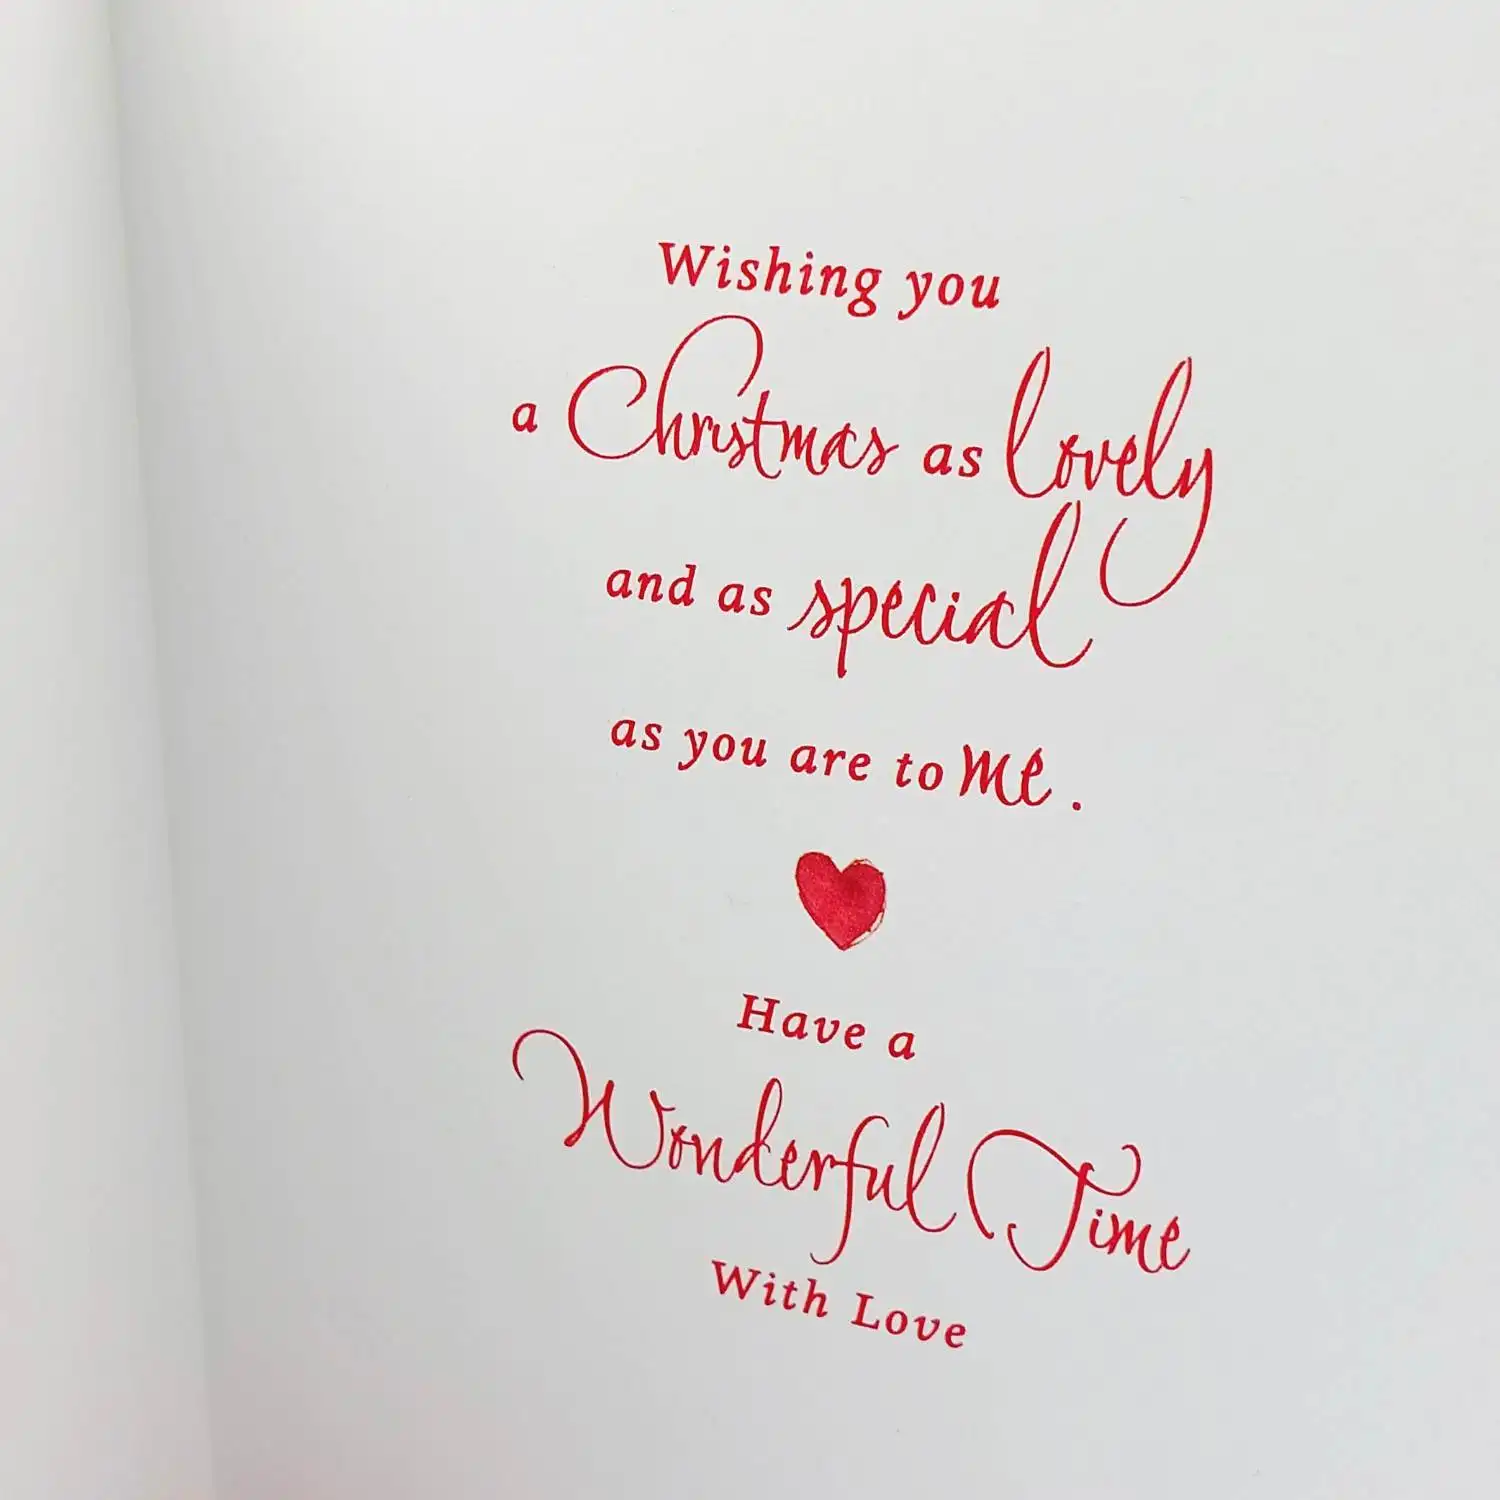 Wishing you
a Christmas as lovely
and as special
as you are to me.
Have a
Wonderful Time
With Love